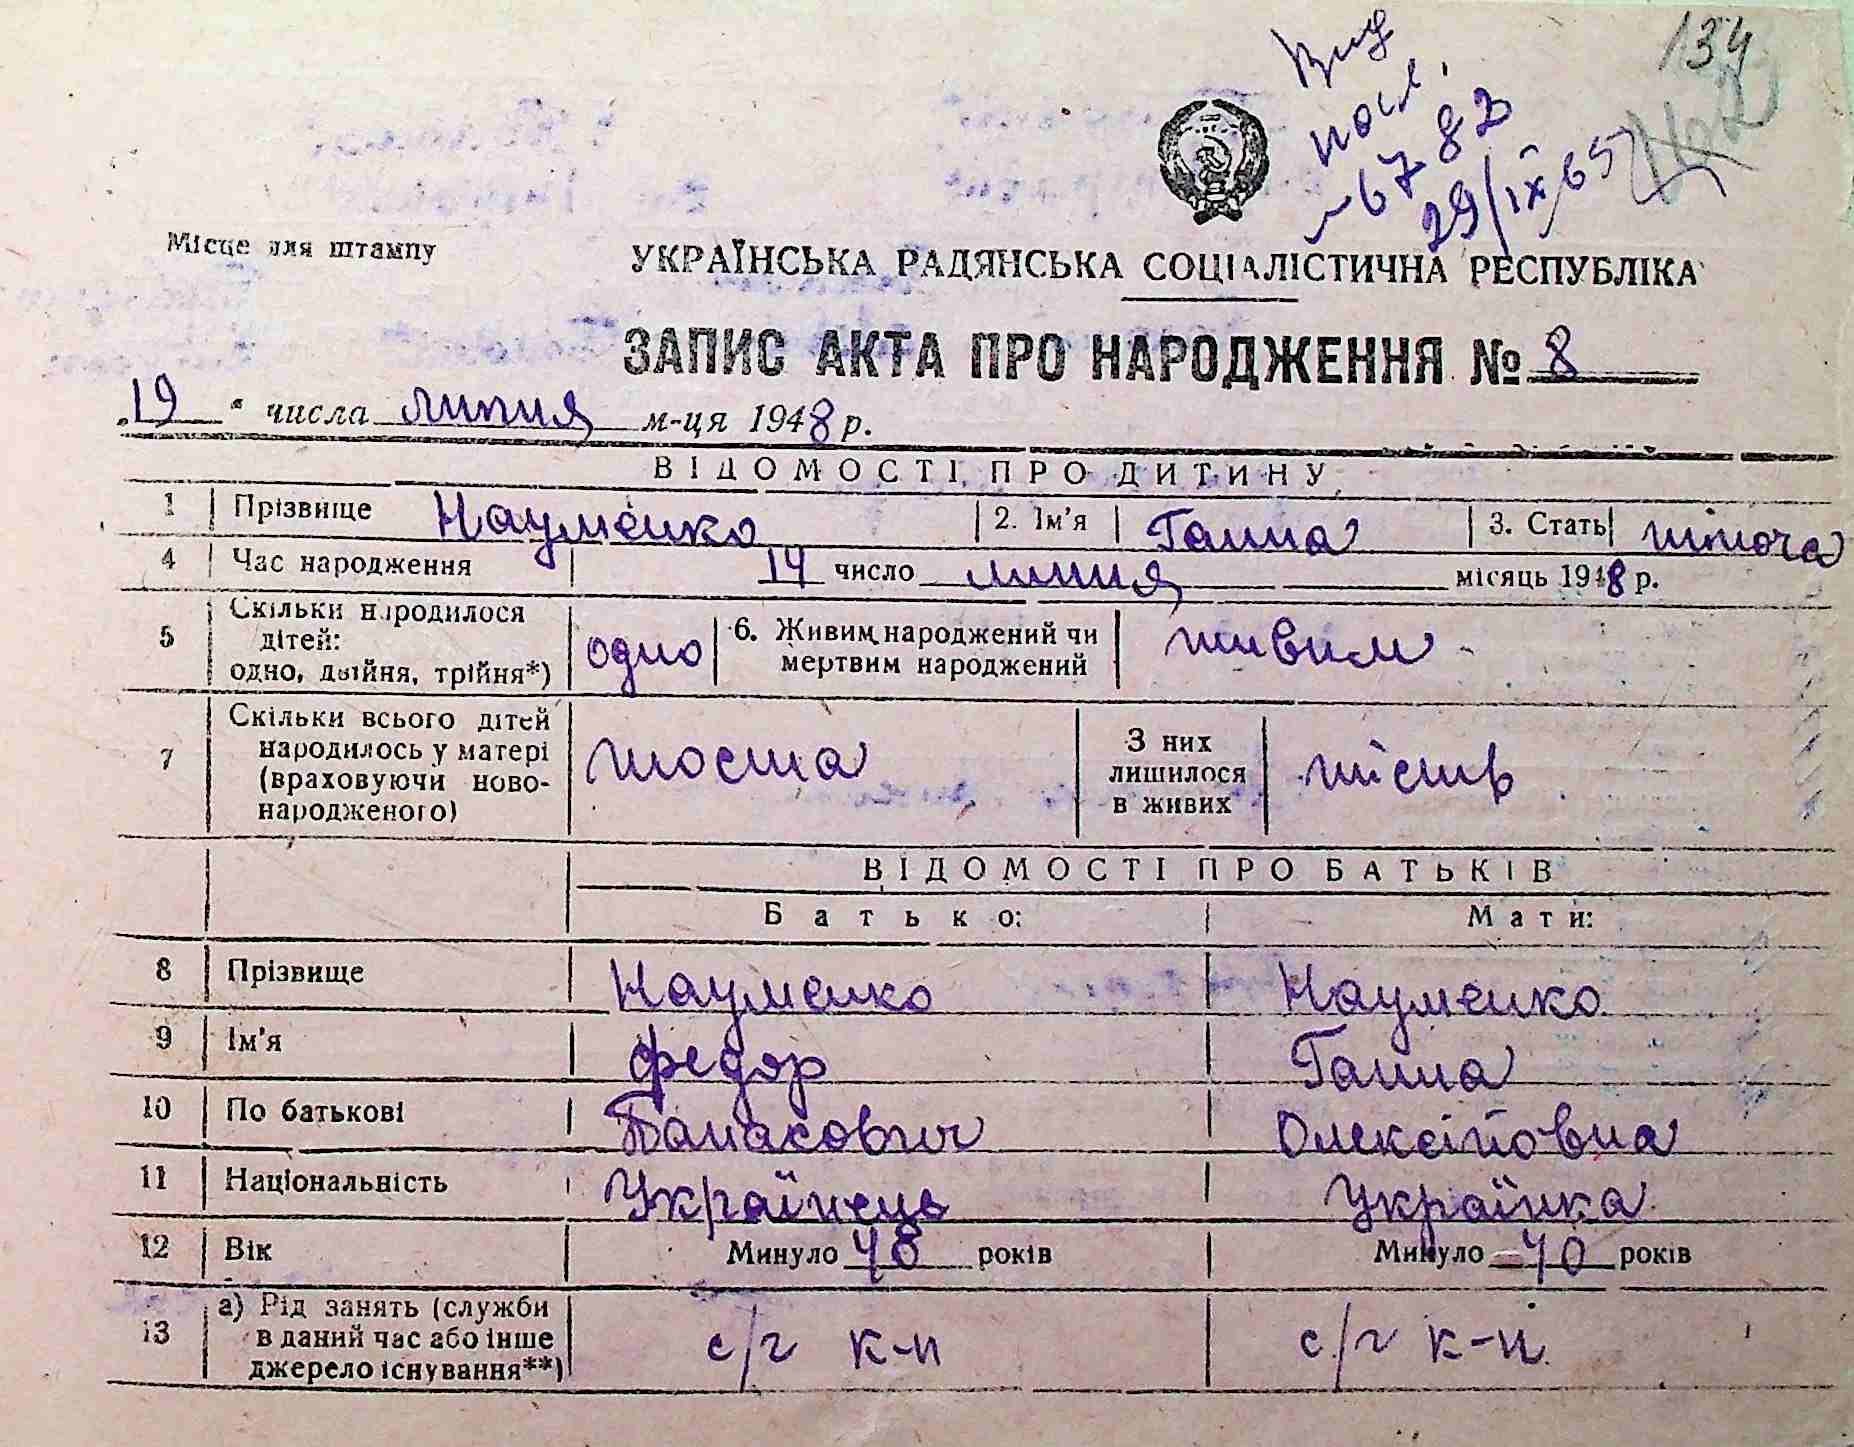 134
Вид
посл.
№ 6782
29/ІХ 65
Місце для штампу
УКРАЇНСЬКА РАДЯНСЬКА СОЦІАЛІСТИЧНА РЕСПУБЛІКА
ЗАПИС АКТА ПРО НАРОДЖЕННЯ № 8
„19" числа липня м-ця 1948 р.
ВІДОМОСТІ ПРО ДИТИНУ
1 Прізвище Науменко 2. Ім'я Ганна 3. Стать жіноча
4 Час народження 14 число липня місяць 1948 р.
5 Скільки народилося дітей: одно, двійня, трійня*) одно 6. Живим народжений чи мертвим народжений живим
7 Скільки всього дітей народилось у матері (враховуючи новонародженого) шоста З них лишилося в живих шість
ВІДОМОСТІ ПРО БАТЬКІВ
Батько: Мати:
8 Прізвище Науменко Науменко
9 Ім'я Федор Ганна
10 По батькові Панасович Олексійовна
11 Національність Українець Українка
12 Вік Минуло 48 років Минуло 40 років
13 а) Рід занять (служби в даний час або інше джерело існування**) с/г к-п с/г к-п